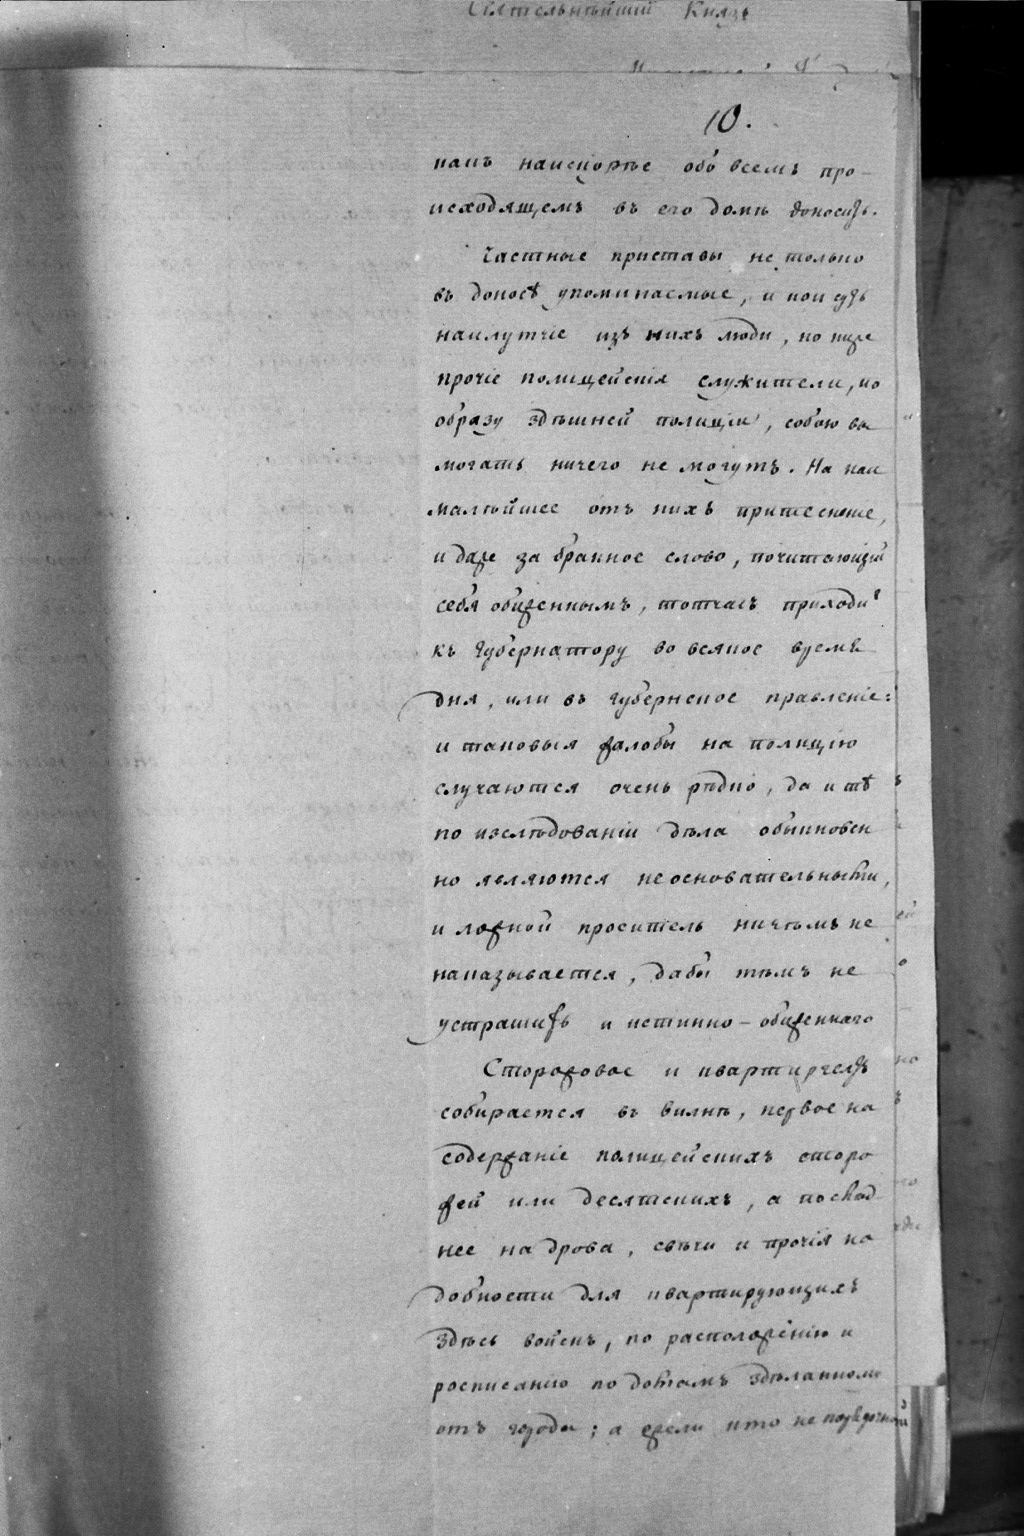 Сіятельнѣйшій Князь
10.
какъ наискорѣе обо всемъ про-
исходящемъ въ его домѣ доносить.
Частные приставы не только
въ доносѣ упоминаемые, и кои суть
наилутчіе изъ нихъ люди, но ниже
прочіе полицейскія служители, по
образу здѣшней полиціи, собою вы
могать ничего не могутъ. На наи
малѣйшее отъ нихъ притесненіе,
и даже за бранное слово, почитающій
себя обиженнымъ, тотчасъ приходи
къ Губернатору во всякое время
дня, или въ губернское правленіе:
и таковыя жалобы на полицію
случаются очень рѣдко, да и тѣ
по изслѣдованіи дѣла обыкновен
но являются неосновательными,
и ложной проситель ничѣмъ не
наказывается, дабы тѣмъ не
устрашить и истинно-обиженнаго
Сторожовое и квартирчее
собирается въ Вилнѣ, первое на
содержаніе полицейскихъ сторо
жей или десятскихъ, а послѣд
нее на дрова, свѣчи и прочія на
добности для квартирующихъ
здѣсь войскъ, по расположенію и
росписанію по домамъ зделанному
отъ города; а ежели кто не порядочной